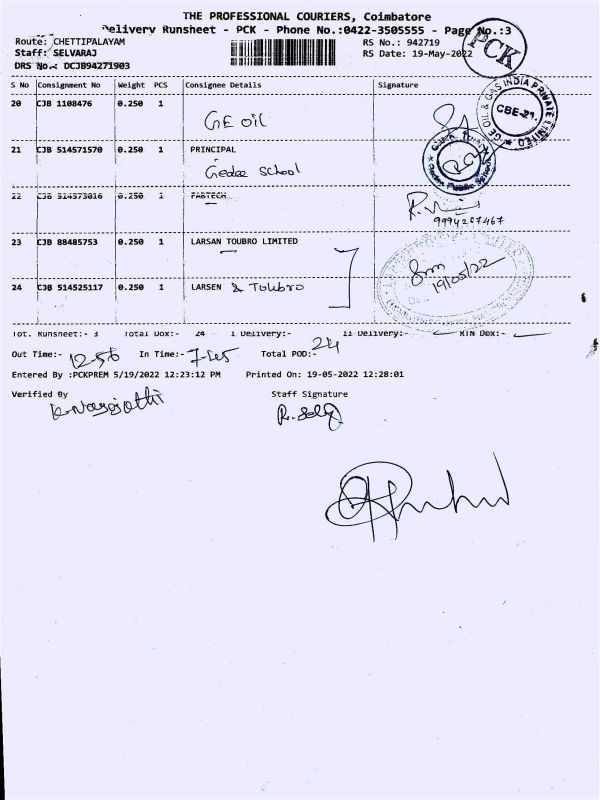 THE PROFESSIONAL COURIERS, Coimbatore
Delivery Runsheet - PCK - Phone No.:0422-3505555 - Page No.:3
PCK
Route: CHETTIPALAYAM
RS No.: 942719
Staff: SELVARAJ
RS Date: 19-May-2022
DRS No.: DCJB94271903
S No Consignment No Weight PCS Consignee Details Signature
20 CJB 1108476 0.250 1
GE OIL
GE OIL & GAS INDIA PRIVATE LIMITED
CBE-21.
21 CJB 514571570 0.250 1 PRINCIPAL
Gedee School
Public School
22 CJB 514573016 0.250 1 FABTECH
9994267467
23 CJB 88485753 0.250 1 LARSAN TOUBRO LIMITED
19/05/22
24 CJB 514525117 0.250 1 LARSEN & Toubro
Tot. Runsheet:- 3 Total Dox:- 24 Delivery:- Delivery:- RTN Dox:-
Out Time:- 12-56 In Time:- Total POD:- 24
Entered By :PCKPREM 5/19/2022 12:23:12 PM Printed On: 19-05-2022 12:28:01
Verified By Staff Signature